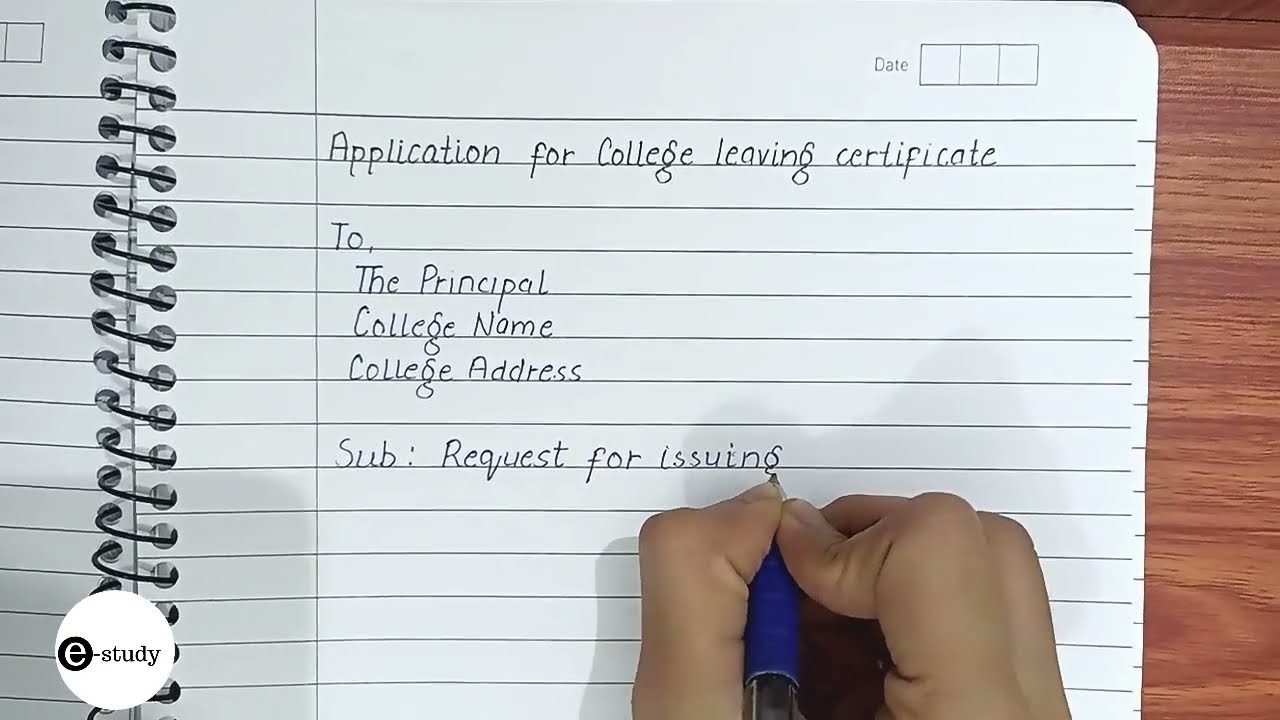 Date
Application for College leaving certificate
To,
The Principal
College Name
College Address
Sub: Request for issuing
e-study